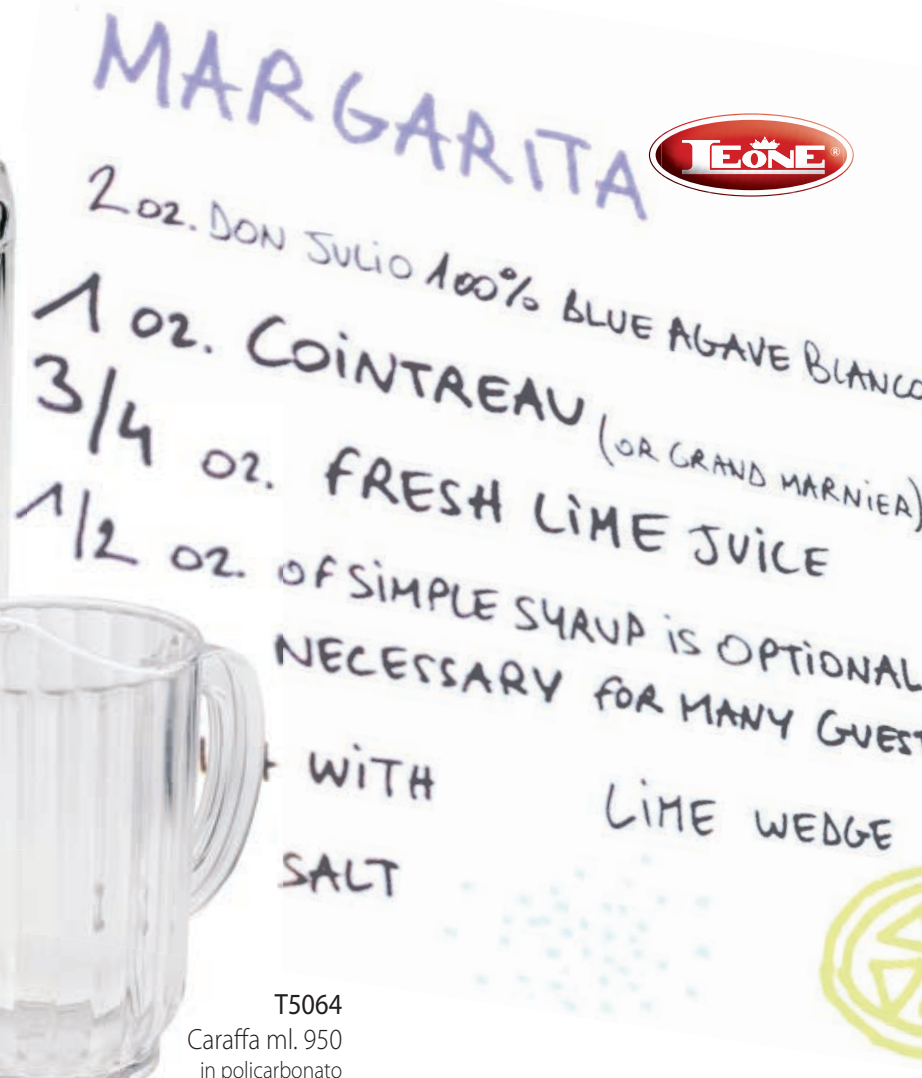 MARGARITA
LEONE®
2 oz. DON JULIO 100% BLUE AGAVE BLANCO
1 oz. COINTREAU (OR GRAND MARNIER)
3/4 oz. FRESH LIME JUICE
1/2 oz. OF SIMPLE SYRUP IS OPTIONAL
NECESSARY FOR MANY GUEST
WITH LIME WEDGE
SALT
T5064
Caraffa ml. 950
in policarbonato